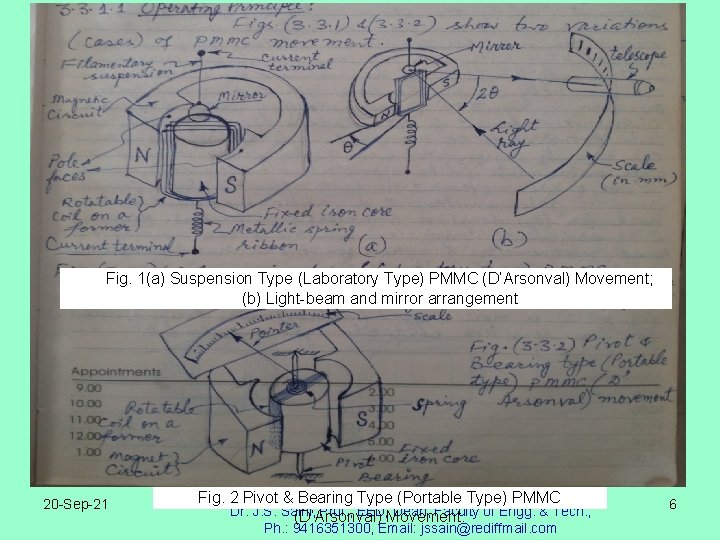 3.3.1.1 Operating Principle:
Figs. (3.3.1) & (3.3.2) show two variations
(cases) of PMMC movement.
Filamentary suspension
Current terminal
Mirror
telescope
Magnetic Circuit
Mirror
S
2θ
N
θ
Light ray
Pole faces
N
S
Scale (in mm)
Rotatable coil on a former
Fixed iron core
Metallic spring ribbon
Current terminal
(a)
(b)
Fig. 1(a) Suspension Type (Laboratory Type) PMMC (D’Arsonval) Movement;
(b) Light-beam and mirror arrangement
scale
Pointer
Fig. (3.3.2) Pivot &
Bearing type (Portable
type) PMMC (D'
Arsonval) movement
Appointments
9.00
10.00
11.00
12.00
1.00
2.00
3.00
5.00
Rotatable coil on a former
Spring
S
N
Magnet Circuit
Fixed iron core
Pivot
Bearing
20-Sep-21
Fig. 2 Pivot & Bearing Type (Portable Type) PMMC
(D’Arsonval) Movement.
Dr. J. S. Saini, Prof., EED, Dean, Faculty of Engg. & Tech.,
Ph.: 9416351300, Email: jssain@rediffmail.com
6